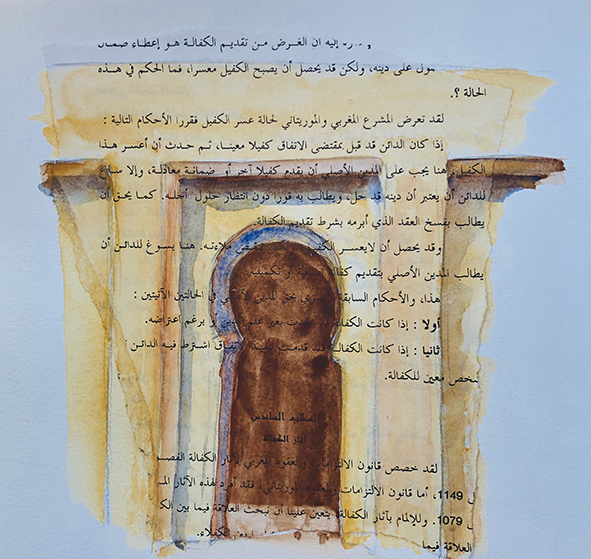 إليه ان الغرض من تقديم الكفالة هو إعطاء
على دينه، ولكن قد يحصل أن يصبح الكفيل معسرا، فما الحكم في هذه
الحالة ؟.
لقد تعرض المشرع المغربي والموريتاني لحالة عسر الكفيل فقررا الأحكام التالية :
إذا كان الدائن قد قبل بمقتضى الاتفاق كفيلا معينا، ثم حدث أن أعسر هذا
الكفيل، هنا يجب على المدين الأصلي أن يقدم كفيلا آخر أو ضمانة معادلة، وإلا ساغ
للدائن أن يعتبر أن دينه قد حل، ويطالب به فورا دون انتظار حلول أجله. كما يحق ان
يطالب بفسخ العقد الذي أبرمه بشرط تقديم الكفالة.
وقد يحصل أن لايعسر ملاءته. هنا يسوغ للدائن أن
يطالب المدين الأصلي بتقديم أو تكميلية
هذا، والأحكام السابقة في الحالتين الآتيتين :
أولا : إذا كانت بغير علم أو برغم اعتراضه.
ثانيا : إذا كانت اشترط فيه الدائن
معين للكفالة.
المطلب السادس
آثار الكفالة
لقد خصص قانون الالتزامات والعقود المغربي لآثار الكفالة
1149، أما قانون الالتزامات والعقود الموريتاني، فقد أفرد لهذه الآثار
1079. وللإلمام بآثار الكفالة، يتعين علينا أن نبحث العلاقة فيما بين
العلاقة فيما الكفلاء.